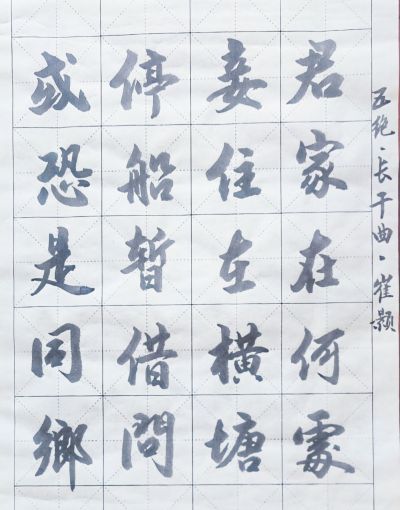 五绝·长干曲·崔颢
君家在何處
妾住在横塘
停船暫借問
或恐是同鄉